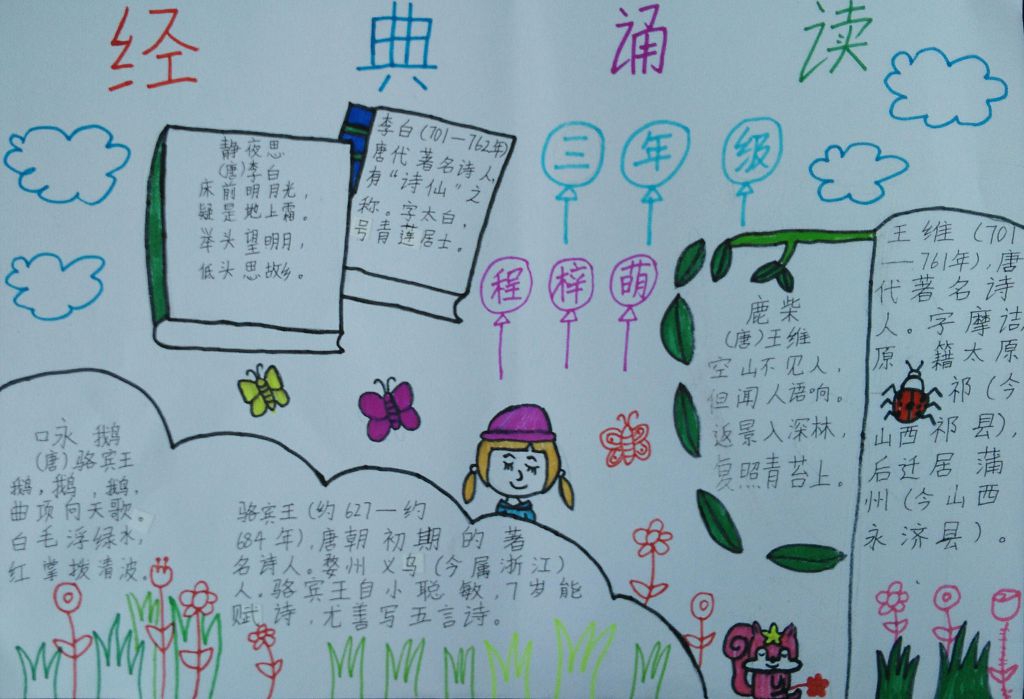 经典诵读
静夜思
(唐)李白
床前明月光，
疑是地上霜。
举头望明月，
低头思故乡。
李白(701—762年)
唐代著名诗人，
有“诗仙”之
称。字太白，
号青莲居士。
三年级
程梓萌
鹿柴
(唐)王维
空山不见人，
但闻人语响。
返景入深林，
复照青苔上。
王维(701
—761年)，唐
代著名诗
人。字摩诘，
原籍太原
祁(今
山西祁县)，
后迁居蒲
州(今山西
永济县)。
口永鹅
(唐)骆宾王
鹅，鹅，鹅，
曲项向天歌。
白毛浮绿水，
红掌拨清波。
骆宾王(约627—约
684年)，唐朝初期的著
名诗人。婺州义乌(今属浙江)
人。骆宾王自小聪敏，7岁能
赋诗，尤善写五言诗。